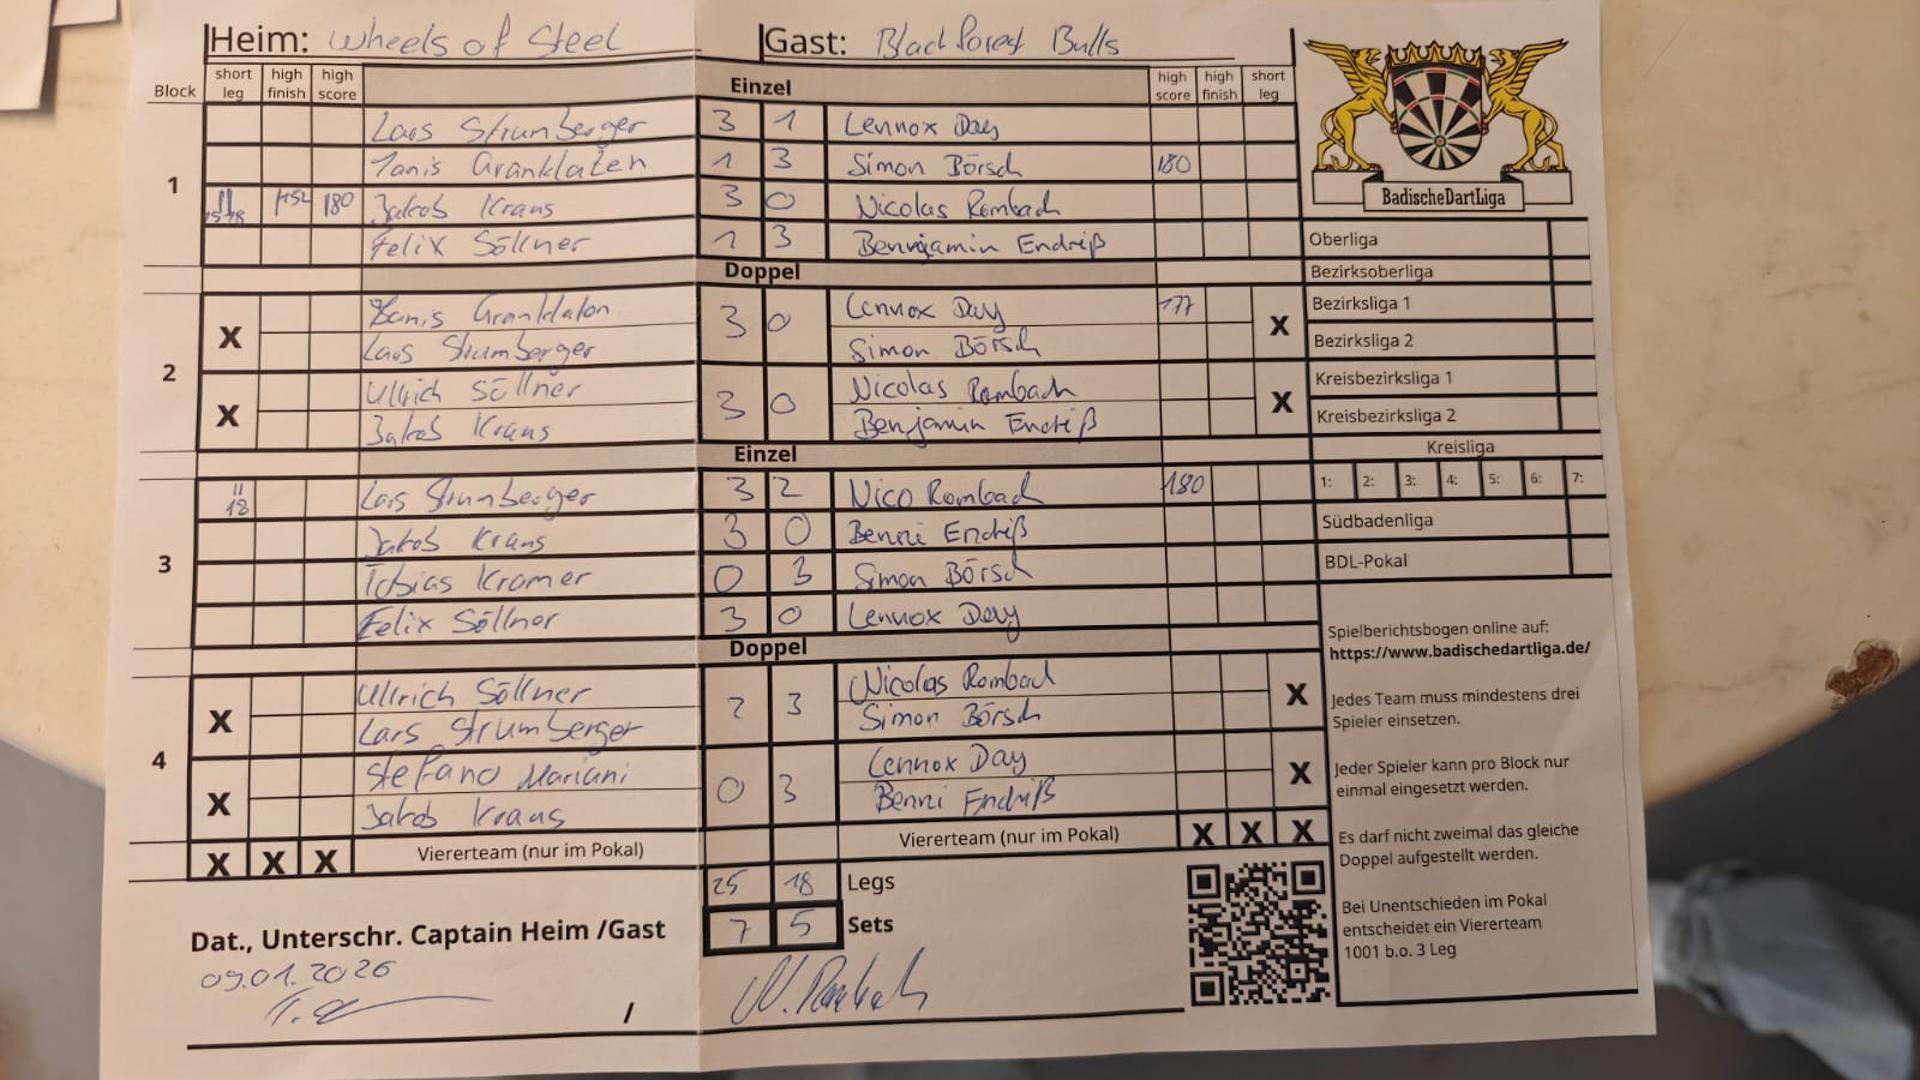 Heim: Wheels of Steel Gast: Blackforest Bulls
Block short leg high finish high score Einzel high score high finish short leg
Lars Strumberger 3 1 Lennox Day
1 Simon Börsch 1 3 180
180 Jakob Kraus 3 0 Nicolas Rombach
Felix Söllner 1 3 Benjamin Endriß
Doppel
3 0 Lennox Day 177
X Lars Strumberger Simon Börsch X
2
Ullrich Söllner 3 0 Nicolas Rombach
X Jakob Kraus Benjamin Endriß X
Einzel
11 18 Lars Strumberger 3 2 Nico Rombach 180
Jakob Kraus 3 0 Benni Endriß
3 Tobias Kromer 0 3 Simon Börsch
Felix Söllner 3 0 Lennox Day
Doppel
Ullrich Söllner 2 3 Nicolas Rombach
X Lars Strumberger Simon Börsch X
4
Stefano Mariani 0 3 Lennox Day
X Jakob Kraus Benni Endriß X
X X X Vierteam (nur im Pokal) Viererteam (nur im Pokal) X X X
25 18 Legs
7 5 Sets
Dat., Unterschr. Captain Heim /Gast
09.01.2026
/
BadischeDartLiga
Oberliga
Bezirksoberliga
Bezirksliga 1
Bezirksliga 2
Kreisbezirksliga 1
Kreisbezirksliga 2
Kreisliga
1: 2: 3: 4: 5: 6: 7:
Südbadenliga
BDL-Pokal
Spielberichtsbogen online auf:
https://www.badischedartliga.de/
Jedes Team muss mindestens drei
Spieler einsetzen.
Jeder Spieler kann pro Block nur
einmal eingesetzt werden.
Es darf nicht zweimal das gleiche
Doppel aufgestellt werden.
Bei Unentschieden im Pokal
entscheidet ein Viererteam
1001 b.o. 3 Leg